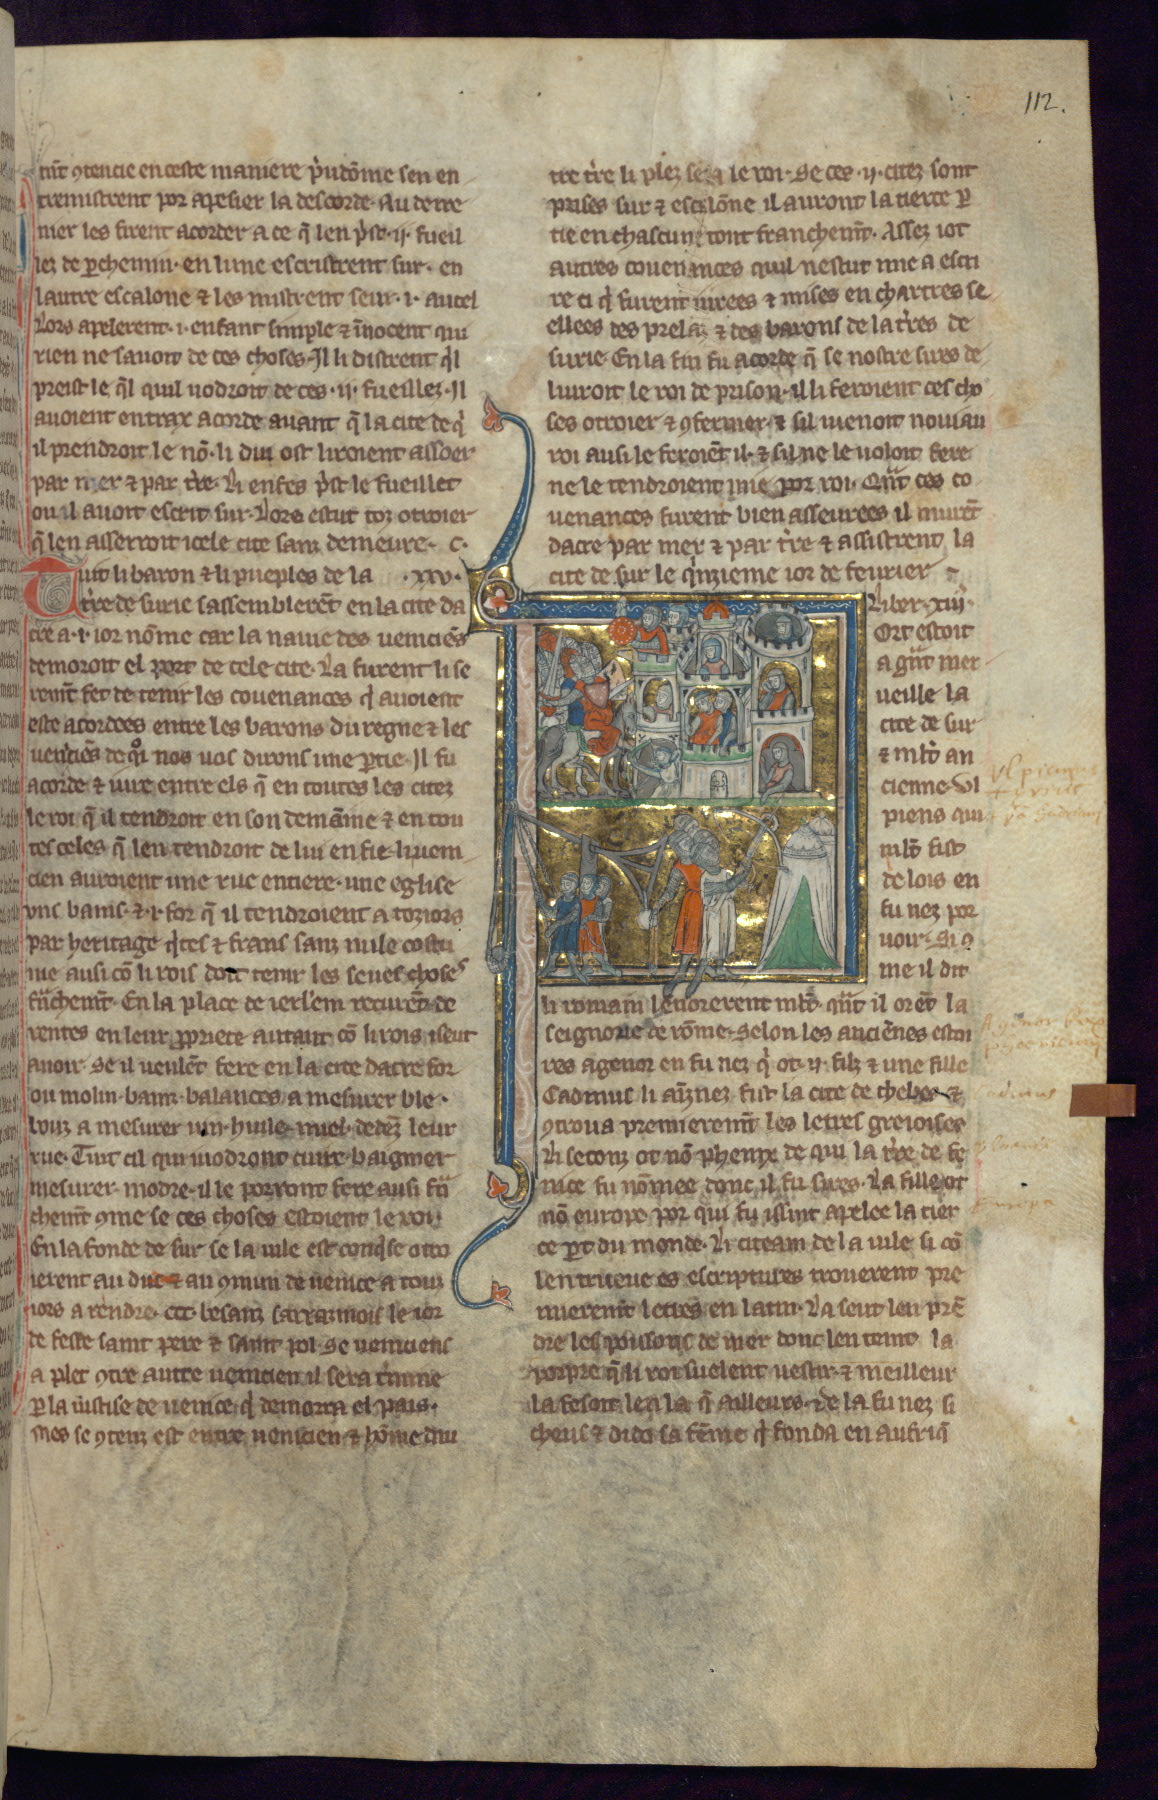 112.
tãt ꝯtencie en ceste maniere p̃udõme sen en
tremistrent por apesier la descorde. Au derre
nier les firent acorder a ce q̃ len p̃st .ii. fueil
lez de ꝑchemin. en lune escristrent sur. en
lautre escalone ⁊ les mistrent seur .i. autel
Lors apelerent .i. enfant simple ⁊ inocent qui
rien ne sauoit de ces choses. Il li distrent q̃l
preist le q̃l quil uodroit de ces .ii. fueillez. Il
auoient entrax acorde auant q̃ la cite de q̃
il prendroit le nõ. li dui ost liroient asseer
par mer ⁊ par t̃re. Li enfes p̃st le fueillet
ou il auoit escrit sur. Lors estut toz otroier
q̃ len asserroit icele cite sanz demeure. c.
Tuit li baron ⁊ li pueples de la .xxv.
t̃re de surie sassemblerẽt en la cite da
cre a .i. ior nõme car la nauie des ueniciẽs
demoroit el port de cele cite. La furent li se
remẽt fet de tenir les couenances q̃ auoient
este acordees entre les barons du regne ⁊ les
ueniciẽs de qoi nos uos dirons une ꝑtie. Il fu
acorde ⁊ iure entre els q̃ en toutes les citez
le roi q̃ il tendroit en son demaine ⁊ en tou
tes celes q̃ len tendroit de lui en fie li ueni
cien auroient une rue entiere. une eglise
uns bains. ⁊ .i. for q̃ il tendroient a toziors
par heritage q̃tes ⁊ frans sanz nule costu
me ausi cõ li rois doit tenir les seues choses
frãchemẽt. En la place de ierlem recurẽt de
rentes en leur ꝓpriete autant cõ li rois i seut
auoir. Se il ueulẽt fere en la cite dacre for
ou molin. bainz. balances a mesurer ble.
bouz a mesurer uin. huile. miel. dedẽz leur
rue. Tuit cil qui uiodront cuire. baignier
mesurer. modre. il le porront fere ausi frã
chemẽt ꝯme se ces choses estoient le roi.
En la fonde de sur se la uile est conq̃se otro
ierent au duc ⁊ au ꝯmun de uenice a touz
iors a rendre .ccc. besanz sarrazinois le ior
de feste saint pere ⁊ saint pol. Se ueniciens
a plet ꝯtre autre uenicien il sera t̃mine
ꝑ la iustise de uenice q̃ demorra el pais.
Mes se ꝯtenz est entre uenicien ⁊ hõme dau
tre t̃re li plez sera le roi. Se ces .ii. citez sont
prises sur ⁊ escalõne il auront la tierce ꝑ
tie en chascune tout franchemẽt. Assez iot
autres couenances quil nestut mie a escri
re ci q̃ furent iurees ⁊ mises en chartres se
ellees des prelaz ⁊ des barons de la t̃res de
surie. En la fin fu acorde q̃ se nostre sires de
liuroit le roi de prison. il li feroient ces cho
ses otroier ⁊ ꝯfermer. ⁊ sil uenoit nouiau
roi ausi le feroiẽt il. ⁊ sil ne le uoloit fere
ne le tendroient mie por roi. Qãt ces co
uenances furent bien asseurees il murẽt
dacre par mer ⁊ par t̃re ⁊ assistrent la
cite de sur le q̃nzieme ior de feurier
Liber .xiii.
Ort estoit
a grãt mer
ueille la
cite de sur
⁊ mlt̃ an
cienne. Ul
piens qui
mlt̃ fist
de lois en
fu nez por
uoir. Si ꝯ
me il dit
li romain lenorerent mlt̃. qãt il orẽt la
seignorie de rõme. Selon les anciẽnes estoi
res agenor en fu nez q̃ ot .ii. filz ⁊ une fille
Cadmus li aĩznez fist la cite de thebes ⁊
ꝯtroua premieremẽt les letres greioises
Li seconz ot nõ phenyx de qui la t̃re de fe
nice fu nõmee donc il fu sires. La fille ot
nõ europe por qui fu issint apelee la tier
ce ꝑt du monde. Li citeain de la uile si cõ
len trueue es escriptures trouerent pre
mieremẽt letres en latin. La seut len prẽ
dre les poissons de mer donc len teint la
porpre q̃ li roi suelent uestir. ⁊ meilleur
la fesoit len la q̃ ailleurs. De la fu nez si
cheus ⁊ dido sa fẽme q̃ fonda en aufriq̃